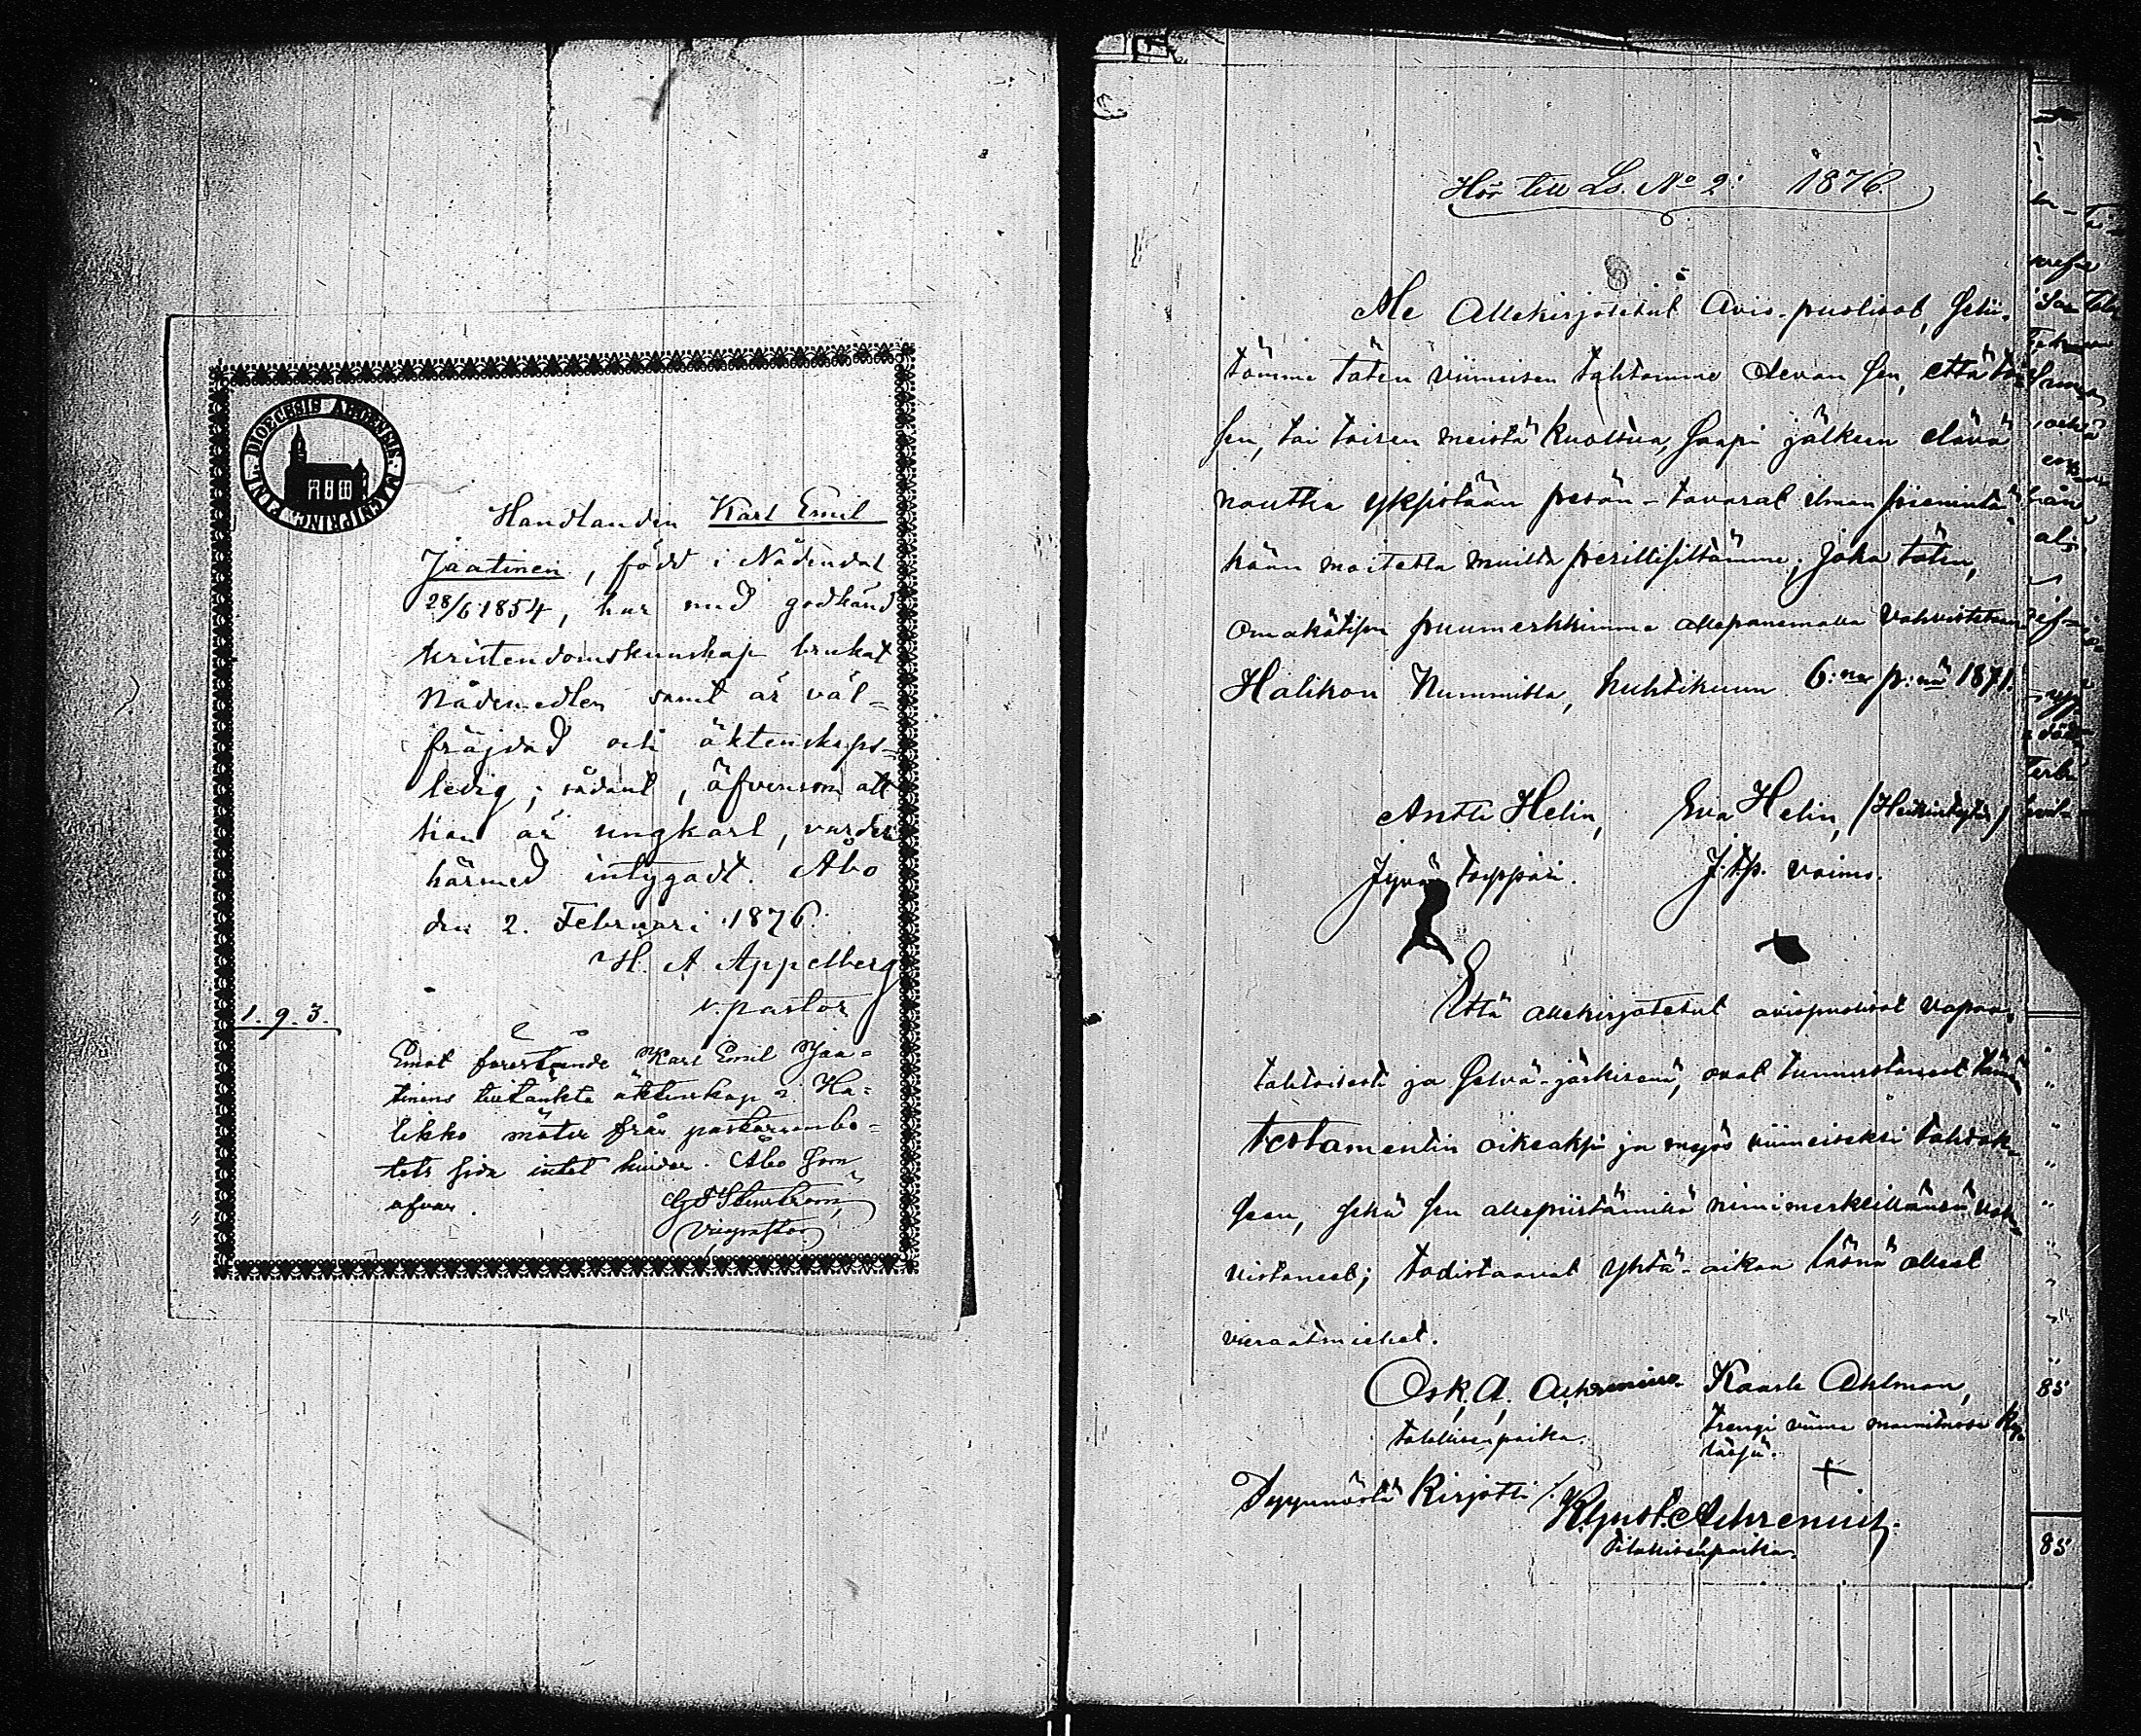 DIOECESIS ABOENSIS. MAGNI PRINC. FINL.
Handlanden Karl Emil
Jaatinen, född i Nådendal
28/6 1854, har med godkänd
kristendomskunskap brukat
Nådemedlen samt är väl-
fräjdad och äktenskaps-
ledig; sådant, äfvensom att
han är ungkarl, varder
härmed intygadt. Åbo
den 2. Februari 1876.
H. A. Appelberg
v. pastor
1. 9. 3.
Emot förestående Karl Emil Jaa-
tinens tilltänkta äktenskap i Ha-
likko möter från pastorsembe-
tets sida intet hinder. Åbo som
ofvan.
Vicepastor
Hör till Ls. No 2: 1876.
Me Allekirjotetut Avio-puolisot, seli-
tämme täten viimeisen tahtomme olevan sen, että toi
sen, tai toisen meistä kuoltua, saapi jälkeen elävä
nauttia yksistään pesän-tavarat ilman pienintä
kään moitetta muilta perillisiltämme; joka täten,
omakätisen puumerkkimme allepanemalla vahvistetaan
Halikon Nummilla, huhtikuun 6:na p:nä 1871.
Antti Helin, Eva Helin, (Heikintytär)
Jyvä torppari. J.t.p. vaimo.
Että allekirjotetut aviopuolisot vapaa-
tahtoisesti ja selvä-järkisenä, ovat tunnustaneet tämän
testamentin oikeaksi ja myös viimeiseksi tahdok-
seen, sekä sen allepiirtämillä nimimerkillänsä vah-
vistaneet; todistaavat yhtä-aikaa läsnä olleet
vieraatmiehet.
Osk. A. Ahrenius Kaarle Ahlman,
talollisenpoika. trengi viime mainitussa ky-
lässä.
Pyynnöstä Kirjotti K. Gust. Ahrenius.
talollisenpoika.
85
85